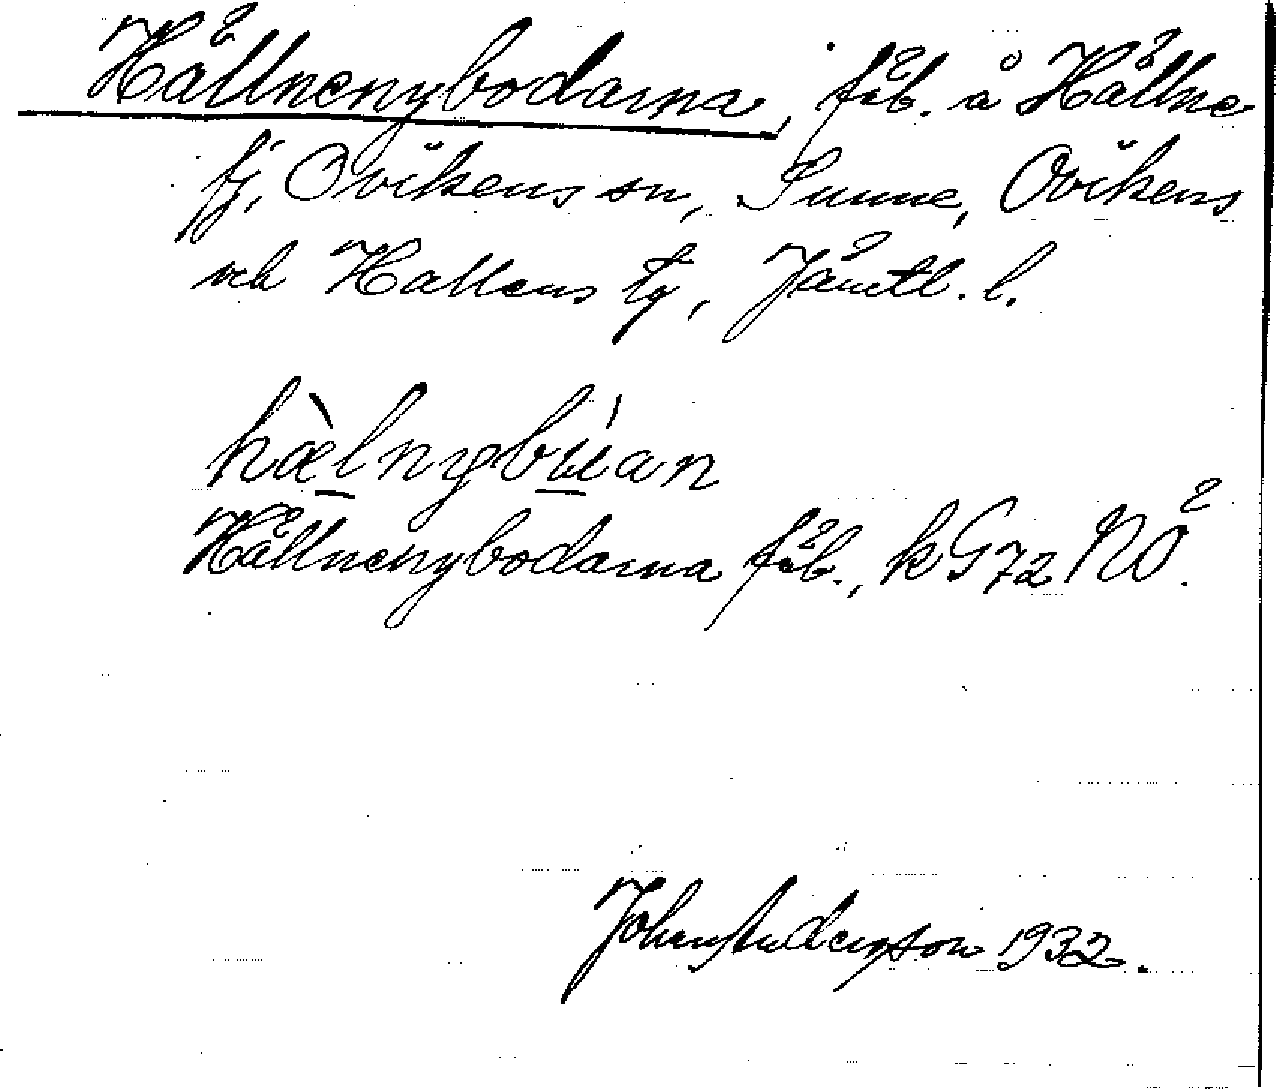 Hällnenybodarna, fäb. å Hällne
fj, Ovikens sn, Sunne, Ovikens
och Hallens tg, Jämtl. l.
hæ̀l̲nybú̲an
Hällnenybodarna fäb., kG72 NÖ.
Johan Anderson 1932.